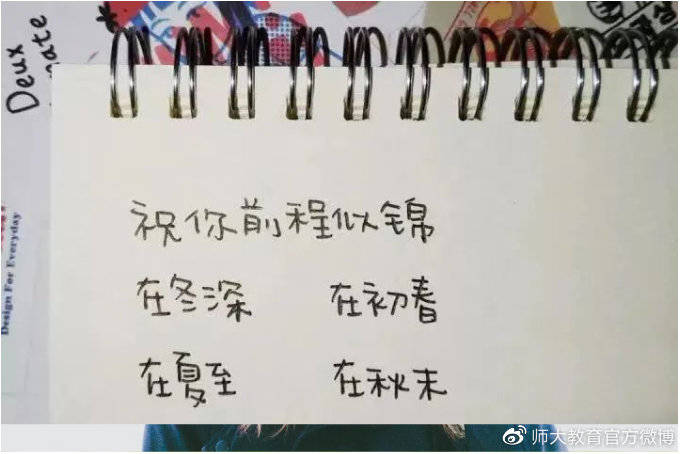 Deux
Design For Everyday
祝你前程似锦
在冬深 在初春
在夏至 在秋末
@师大教育官方微博